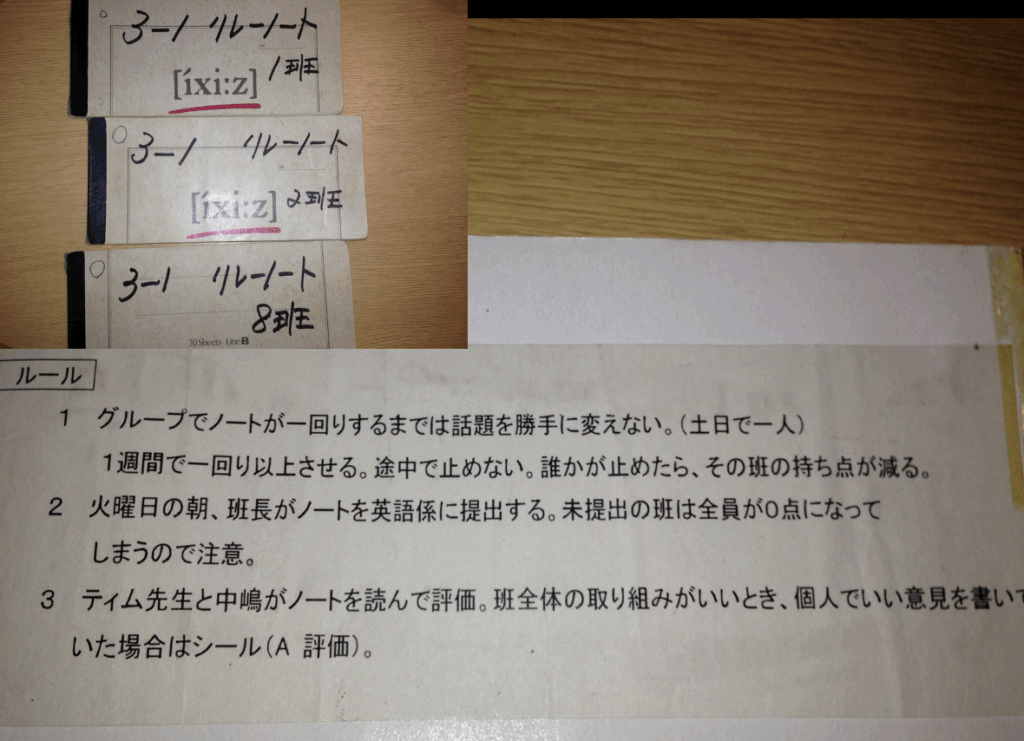 3-1 リレーノート
1班
[íxi:z]
3-1 リレーノート
2班
[íxi:z]
3-1 リレーノート
8班
30 Sheets Line B
ルール
1 グループでノートが一回りするまでは話題を勝手に変えない。(土日で一人)
1週間で一回り以上させる。途中で止めない。誰かが止めたら、その班の持ち点が減る。
2 火曜日の朝、班長がノートを英語係に提出する。未提出の班は全員が0点になって
しまうので注意。
3 ティム先生と中嶋がノートを読んで評価。班全体の取り組みがいいとき、個人でいい意見を書いて
いた場合はシール(A 評価)。